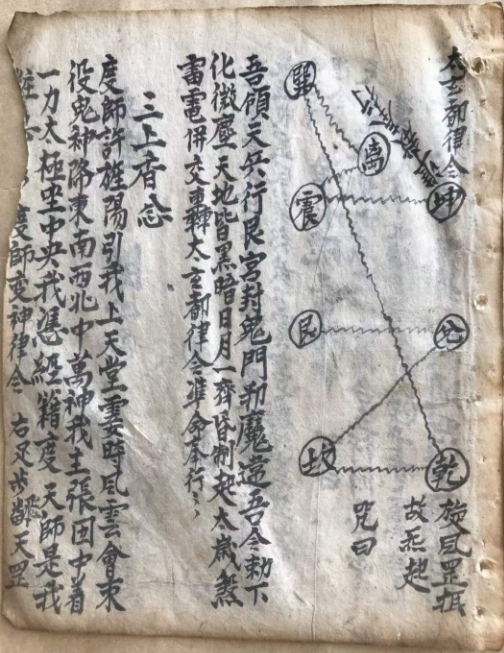 太玄都律令
旋風罡抵
故炁起
咒曰
坤
兌
乾
震
艮
坎
吾領天兵行艮宮封鬼門刱魔違吾令勅下
化微塵天地皆黑暗日月一齊昏制起太歲煞
雷電併交轟太玄都律令準命奉行
三上香念
度師許旌陽引我上天堂霎時風雲會束
役鬼神降東南西北中萬神我主張回中著
一力太極坐中央我憑經籍度天師是我
度師變神律令 右足步 天罡